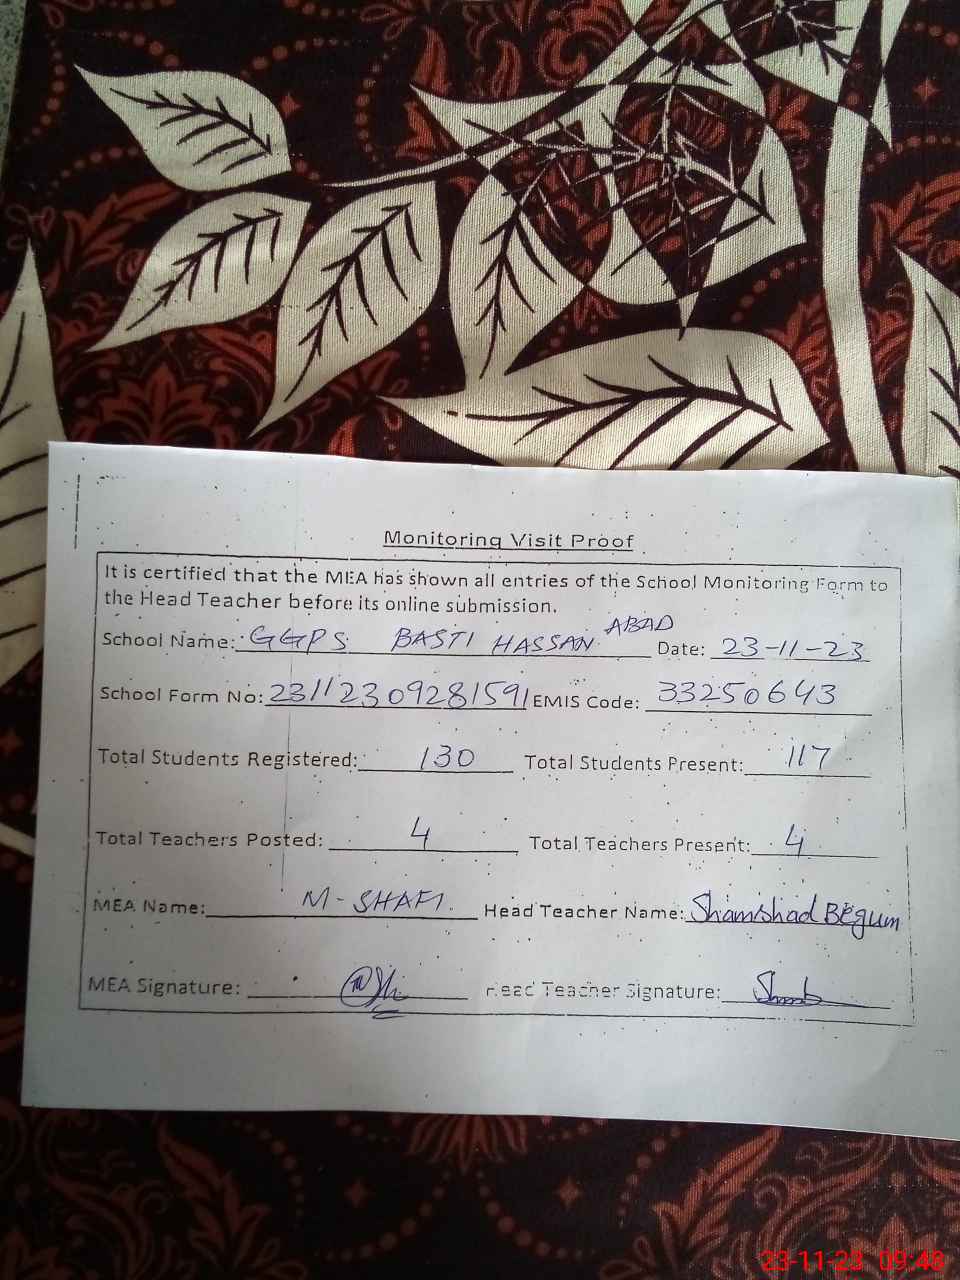 Monitoring Visit Proof
It is certified that the MEA has shown all entries of the School Monitoring Form to
the Head Teacher before its online submission.
School Name: GGPS BASTI HASSAN ABAD Date: 23-11-23
School Form No: 23112309281591 EMIS Code: 33250643
Total Students Registered: 130 Total Students Present: 117
Total Teachers Posted: 4 Total Teachers Present: 4
MEA Name: M-SHAFI. Head Teacher Name: Shamshad Begum
MEA Signature: Head Teacher Signature:
23-11-23 09:48